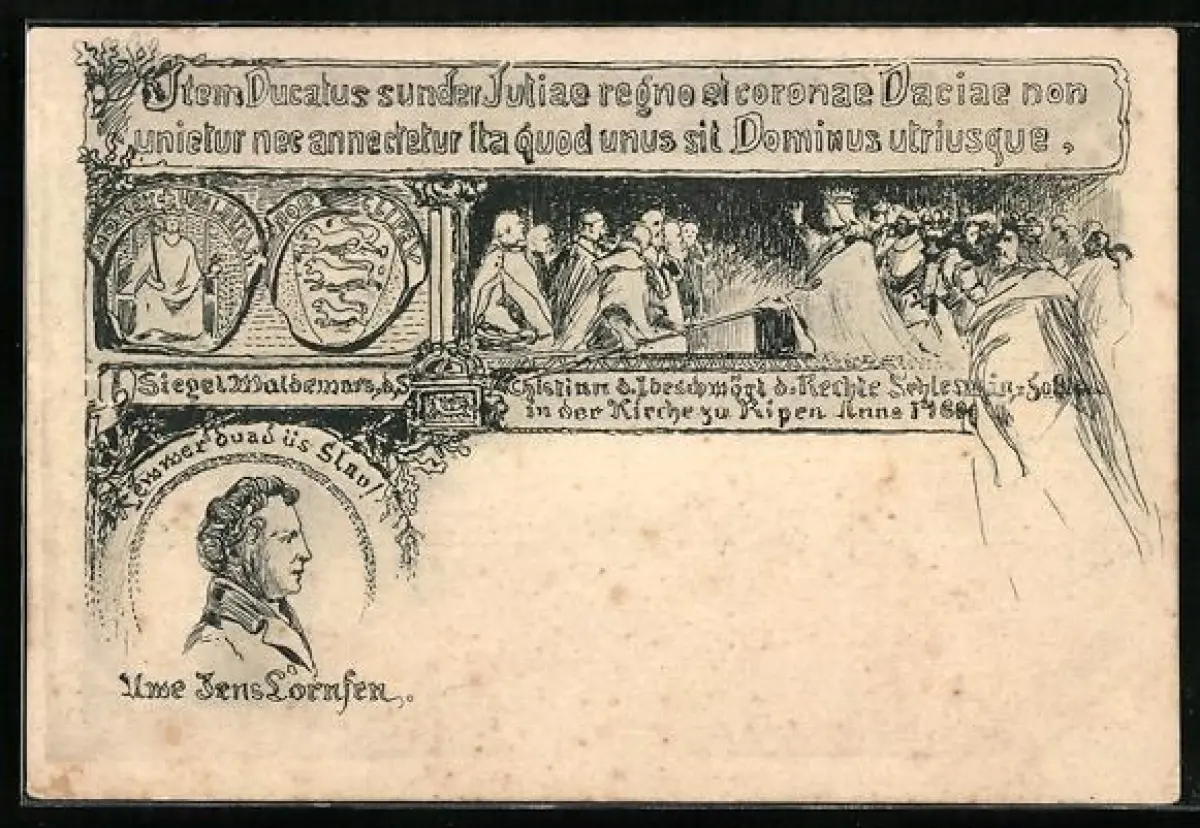 Item Ducatus sunder Jutiae regno et coronae Daciae non
unietur nec annectetur ita quod unus sit Dominus utriusque,
Siegel Waldemars, d. S
Christian d. I beschwögt d. Rechte Schleswig-Hol
in der Kirche zu Ripen Anno 1460
wer duad üs Slav!
Uwe Jens Lörnsen.